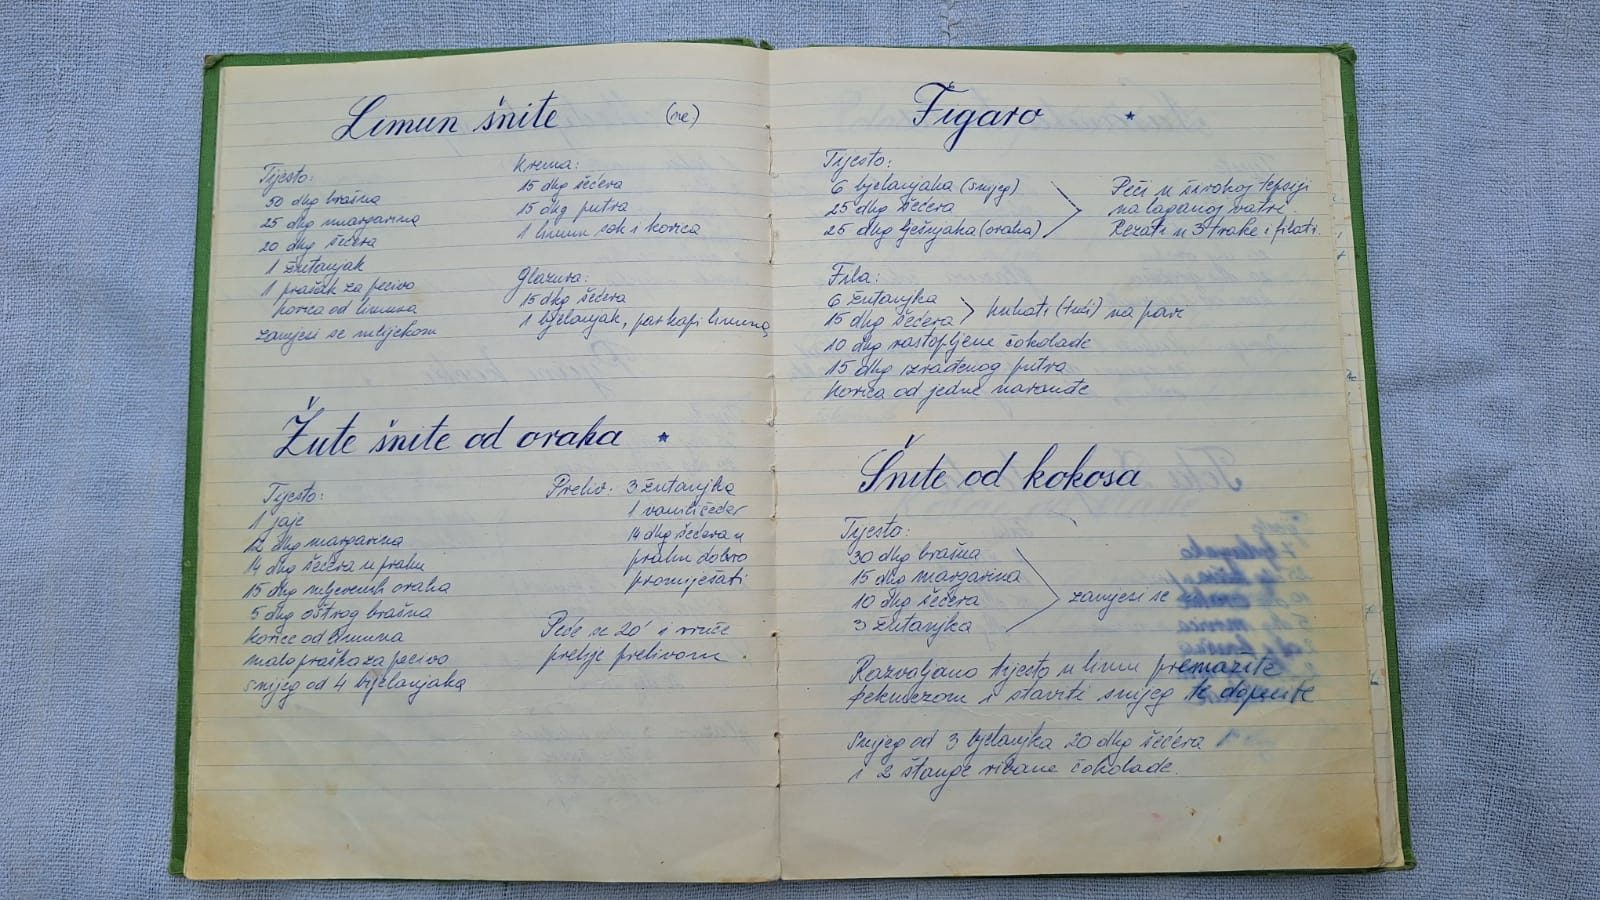 Limun šnite (ne)
Tijesto:
50 dkg brašna
25 dkg margarina
20 dkg šećera
1 žutanjak
1 prašak za pecivo
korica od limuna
zamjesi se mlijekom
Krema:
15 dkg šećera
15 dkg putra
1 limun sok i korica
Glazura:
15 dkg šećera
1 bjelanjak, par kapi limuna
Žute šnite od oraha *
Tijesto:
1 jaje
12 dkg margarina
14 dkg šećera u prahu
15 dkg mljevenih oraha
5 dkg oštrog brašna
korice od limuna
malo praška za pecivo
snijeg od 4 bijelanjaka
Preliv: 3 žutanjka
1 vanili šećer
14 dkg šećera u
prahu dobro
promiješati
Peče se 20' i vruće
prelije prelivom.
Figaro *
Tijesto:
6 bjelanjaka (snijeg)
25 dkg šećera
25 dkg lješnjaka (oraha)
Peći u širokoj tepsiji
na laganoj vatri.
Rezati u 3 trake i filati.
Fila:
6 žutanjka
15 dkg šećera
kuhati (tući) na pari
10 dkg rastopljene čokolade
15 dkg izrađenog putra
korica od jedne naranđe
Šnite od kokosa
Tijesto:
30 dkg brašna
15 dkg margarina
10 dkg šećera
3 žutanjka
zamjesi se
Razvaljano tijesto u limu premažite
pekmezom i stavite snijeg te dopecite
Snijeg od 3 bjelanjka 20 dkg šećera
i 2 štange ribane čokolade.